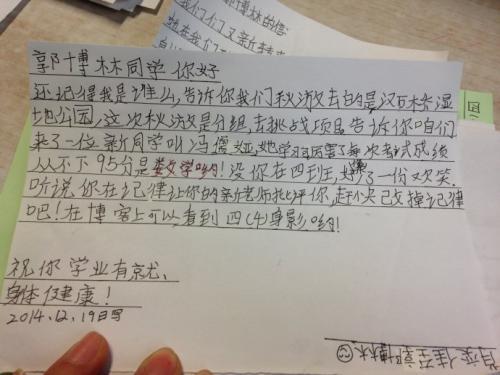 郭博林的信
我们们又新转来
郭博林同学你好
还记得我是谁么,告诉你我们秋游去的是汉石桥湿
地公园,这次秋游是分组,去挑战项目告诉你咱们
来了一位新同学叫冯偲娅,她学习可厉害了每次考试成绩
从不下95分是数学哟!没你在四班,好像少了一份欢笑.
听说你在记律让你的新老师批评你,赶快改掉记律
吧!在博客上可以看到四(4)身影哟!
祝你学业有就、
身体健康!
2014.12.19日写
佳至郭博林